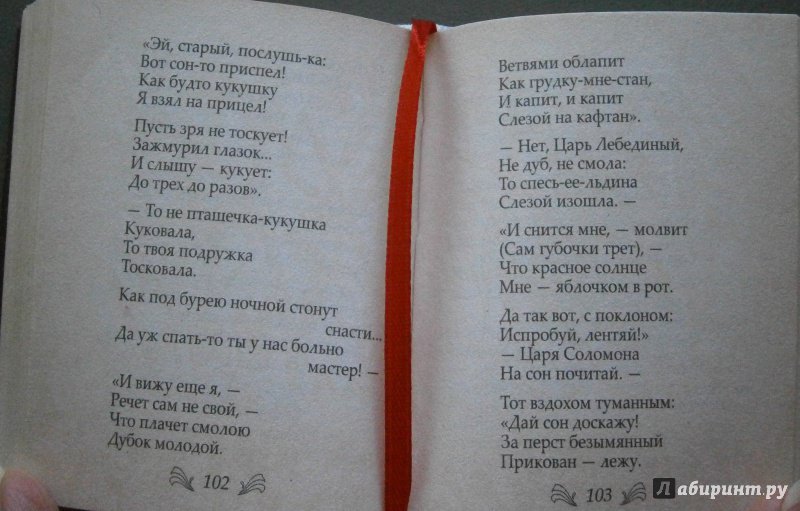 «Эй, старый, послушь-ка:
Вот сон-то приспел!
Как будто кукушку
Я взял на прицел!
Пусть зря не тоскует!
Зажмурил глазок...
И слышу — кукует:
До трех до разов».
— То не пташечка-кукушка
Куковала,
То твоя подружка
Тосковала.
Как под бурею ночной стонут
снасти...
Да уж спать-то ты у нас больно
мастер! —
«И вижу еще я, —
Речет сам не свой, —
Что плачет смолою
Дубок молодой.
102
Ветвями облапит
Как грудку-мне-стан,
И капит, и капит
Слезой на кафтан».
— Нет, Царь Лебединый,
Не дуб, не смола:
То спесь-ее-льдина
Слезой изошла. —
«И снится мне, — молвит
(Сам губочки трет), —
Что красное солнце
Мне — яблочком в рот.
Да так вот, с поклоном:
Испробуй, лентяй!»
— Царя Соломона
На сон почитай. —
Тот вздохом туманным:
«Дай сон доскажу!
За перст безымянный
Прикован — лежу.
103
Лабиринт.ру